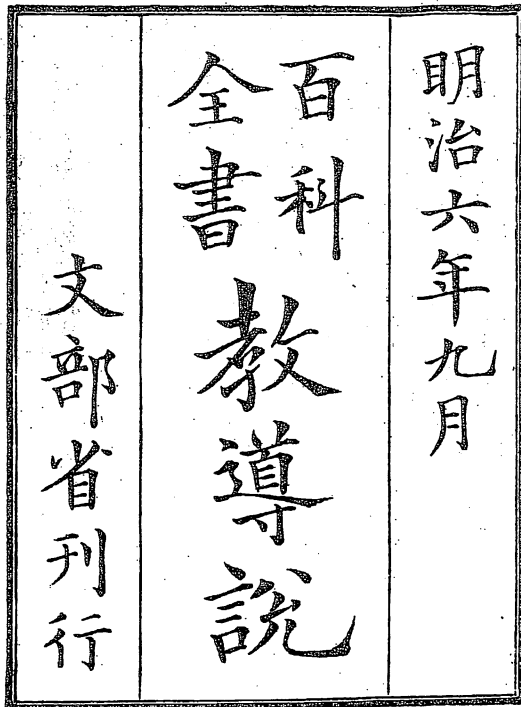 明治六年九月
百科
全書
教導說
文部省刊行